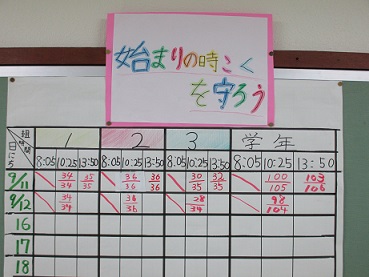 始まりの時こく
を守ろう
組 時間 日にち 1 2 3 学年
8:05 10:25 13:50 8:05 10:25 13:50 8:05 10:25 13:50 8:05 10:25 13:50
9/11 34/34 35/35 36/36 36/36 30/35 32/35 100/105 103/106
9/12 34/34 36/36 28/34 98/104
16
17
18